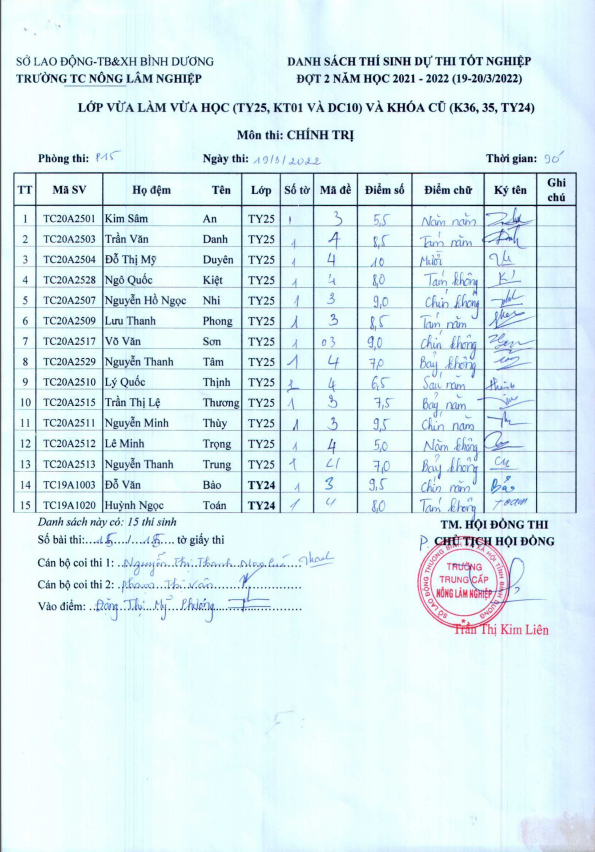 SỞ LAO ĐỘNG-TB&XH BÌNH DƯƠNG
TRƯỜNG TC NÔNG LÂM NGHIỆP
DANH SÁCH THÍ SINH DỰ THI TỐT NGHIỆP
ĐỢT 2 NĂM HỌC 2021 - 2022 (19-20/3/2022)
LỚP VỪA LÀM VỪA HỌC (TY25, KT01 VÀ DC10) VÀ KHÓA CŨ (K36, 35, TY24)
Môn thi: CHÍNH TRỊ
Phòng thi: P15 Ngày thi: 19/3/2022 Thời gian: 90'
TT Mã SV Họ đệm Tên Lớp Số tờ Mã đề Điểm số Điểm chữ Ký tên Ghi chú
1 TC20A2501 Kim Sâm An TY25 1 3 5,5 Năm năm
2 TC20A2503 Trần Văn Danh TY25 1 4 8,5 Tám năm
3 TC20A2504 Đỗ Thị Mỹ Duyên TY25 1 4 10 Mười
4 TC20A2528 Ngô Quốc Kiệt TY25 1 4 8,0 Tám không
5 TC20A2507 Nguyễn Hồ Ngọc Nhi TY25 1 3 9,0 Chín không
6 TC20A2509 Lưu Thanh Phong TY25 1 3 8,5 Tám năm
7 TC20A2517 Võ Văn Sơn TY25 1 03 9,0 Chín không
8 TC20A2529 Nguyễn Thanh Tâm TY25 1 4 7,0 Bảy không
9 TC20A2510 Lý Quốc Thịnh TY25 2 4 6,5 Sáu năm
10 TC20A2515 Trần Thị Lệ Thương TY25 1 3 7,5 Bảy năm
11 TC20A2511 Nguyễn Minh Thùy TY25 1 3 9,5 Chín năm
12 TC20A2512 Lê Minh Trọng TY25 1 4 5,0 Năm không
13 TC20A2513 Nguyễn Thanh Trung TY25 1 4 7,0 Bảy không
14 TC19A1003 Đỗ Văn Bảo TY24 1 3 9,5 Chín năm Bảo
15 TC19A1020 Huỳnh Ngọc Toán TY24 1 4 8,0 Tám không Toán
Danh sách này có: 15 thí sinh
Số bài thi: 15 / 15 tờ giấy thi
Cán bộ coi thi 1: Nguyễn Thị Thanh
Cán bộ coi thi 2: Phạm Thị Vân
Vào điểm: Đặng Thị Mỹ Phương
TM. HỘI ĐỒNG THI
P. CHỦ TỊCH HỘI ĐỒNG
TRƯỜNG
TRUNG CẤP
NÔNG LÂM NGHIỆP
Trần Thị Kim Liên